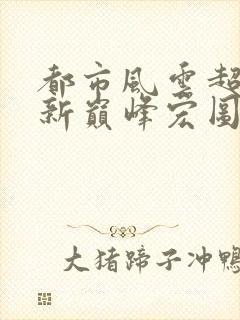 都市風雲超
新巔峰宏圖
大猪蹄子冲鴨